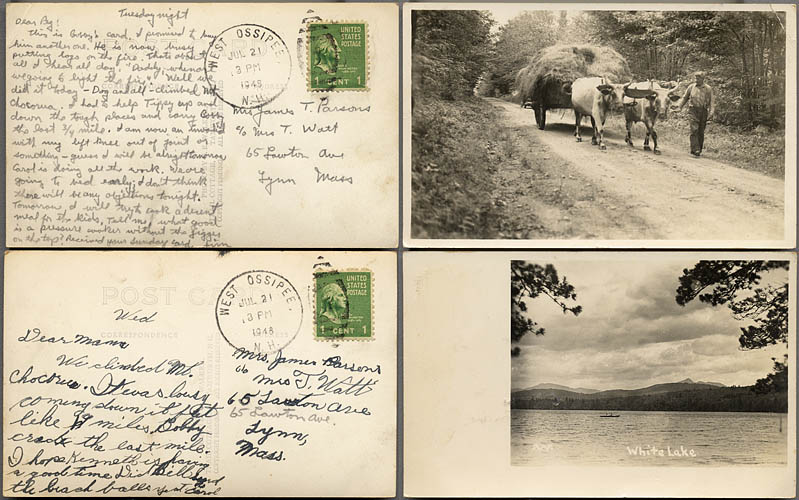 Tuesday night
Dear By!
This is Corry's card, I promised to buy
him another one. He is now busy
putting logs on the fire. That's about
all I hear all day "Daddy, when are
we going to light the fire." Well we
did it today - Dog and all - climbed Mt
Chocorua. I had to help Tipsy up and
down the tough places and carry
the last 3/4 mile. I am now an invalid
with my left knee out of joint or
something - guess I will be alright tomorrow
Carol is doing all the work. We are
going to bed early; I don't think
there will be any objections tonight.
Tomorrow, I will try to cook a decent
meal for the kids. Tell me, what good
is a pressure cooker without the jigger
on the top? Received your Sunday card. Jim
WEST OSSIPEE.
JUL 21
3 PM
1948
N.H.
UNITED
STATES
POSTAGE
1 CENT 1
Mrs James T. Parsons
c/o Mrs T. Watt
65 Lawton Ave
Lynn Mass
POST CARD
CORRESPONDENCE
Wed
Dear Mama
We climbed Mt.
Chocorua. It was lousy
coming down it felt
like 9 miles. Bobby
the last mile.
I hope Kenneth is having
a good time. Did Bill
the beach balls yet Carol
WEST OSSIPEE.
JUL 21
3 PM
1948
N.H.
UNITED
STATES
POSTAGE
1 CENT 1
Mrs. James Parsons
c/o Mrs T. Watt
65 Lawton Ave
65 Lawton Ave.
Lynn,
Mass.
White Lake